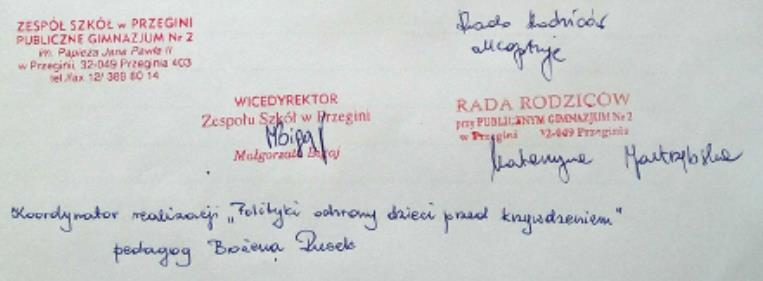 ZESPÓŁ SZKÓŁ w PRZEGINI
PUBLICZNE GIMNAZJUM Nr 2
im. Papieża Jana Pawła II
w Przegini, 32-049 Przeginia 403
tel./fax 12/ 389 80 14
Rada Rodziców
akceptuje
WICEDYREKTOR
Zespołu Szkół w Przegini
Małgorzata
RADA RODZICÓW
przy PUBLICZNYM GIMNAZJUM Nr 2
w Przegini 32-049 Przeginia
Katarzyna Jastrzębska
Koordynator realizacji „Polityki ochrony dzieci przed krzywdzeniem"
pedagog Bożena